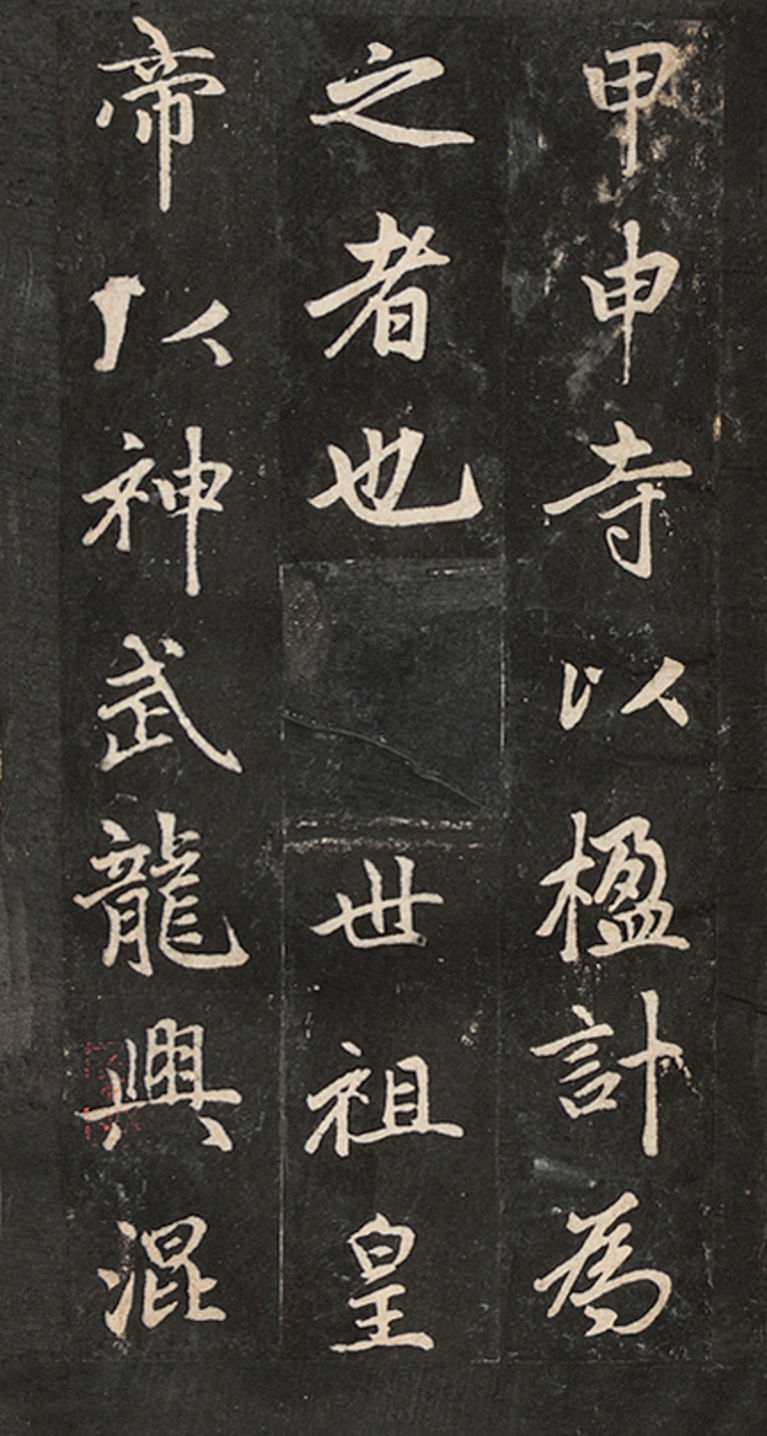 甲申寺以楹計為
之者也世祖皇
帝以神武龍興混